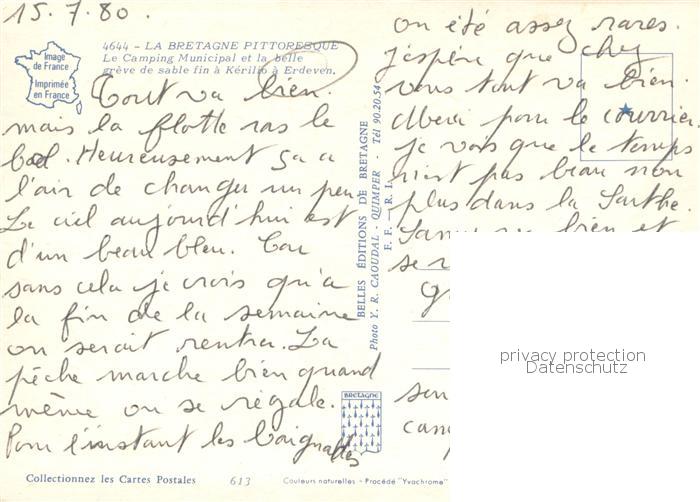 15.7.80.
Image
de France
Imprimée
en France
4644 - LA BRETAGNE PITTORESQUE
Le Camping Municipal et la belle
grève de sable fin à Kérilio à Erdeven.
Tout va bien.
mais la flotte ras le
bol. Heureusement ça a
l'air de changer un peu
Le ciel aujourd'hui est
d'un beau bleu. Car
sans cela je crois qu'à
la fin de la semaine
on serait rentré. La
pêche marche bien quand
même on se régale.
Pour l'instant les baignades
BELLES ÉDITIONS DE BRETAGNE
Photo Y. R. CAOUDAL - QUIMPER - Tél 90.20.54
F. F. - R. I.
on été assez rares.
j'espère que chez
vous tout va bien.
Merci pour le courrier.
je vois que le temps
n'est pas beau non
plus dans la Sarthe.
va bien et
se
son
cam
BRETAGNE
privacy protection
Datenschutz
Collectionnez les Cartes Postales
613
Couleurs naturelles - Procédé "Yvachrome"